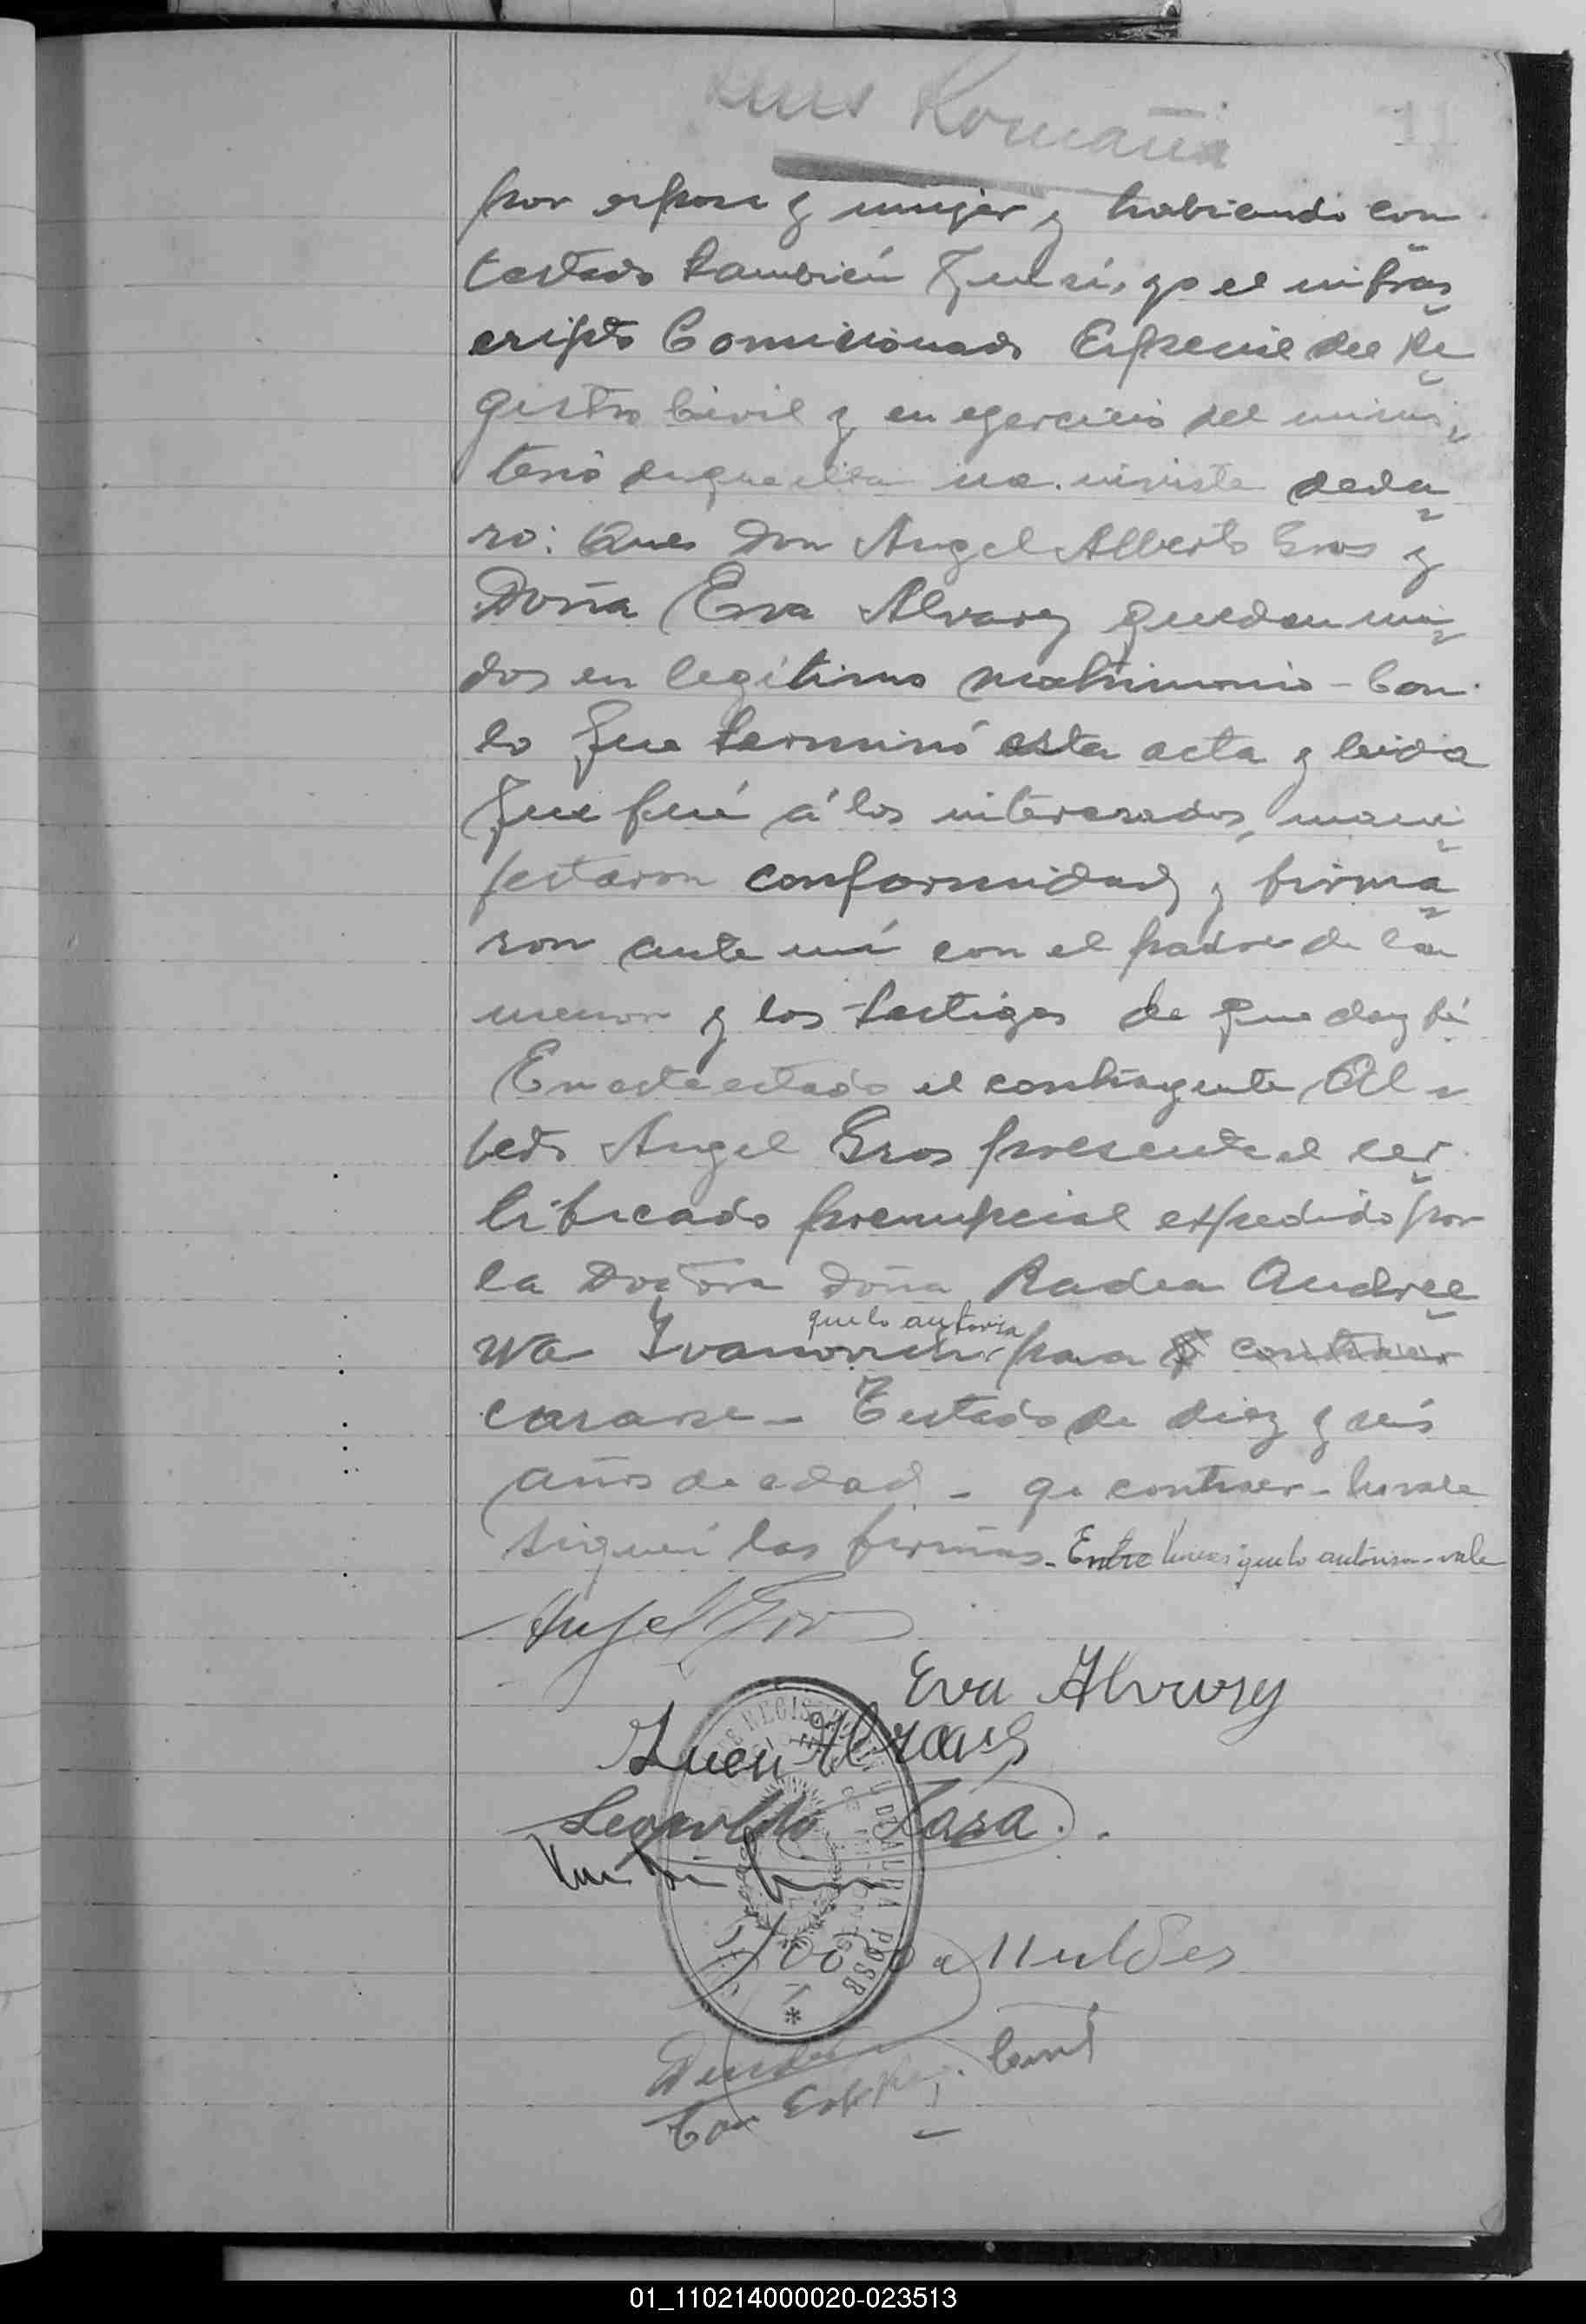 Luis Romaña
11
por esposa y mujer y habiendo con
testado también que sí, yo el infras
cripto Comisionado Especial del Re
gistro Civil y en egercicio del minis
terio de que ella me inviste decla
ro: Que Don Angel Alberto Gros y
Doña Eva Alvarez quedan uni
dos en legítimo matrimonio - Con
lo que terminó esta acta y leida
que fué á los interesados, mani
festaron conformidad y firma
ron ante mí con el padre de la
menor y los testigos de que doy fé
En este estado el contrayente Al
berto Angel Gros presenta el cer
tificado prenupcial expedido por
la Doctora Doña Radea Andree
wa que lo autoriza para contraer
casarse - Testado de diez y seis
años de edad - y contraer - no vale
siguen las firmas - Entre lineas que lo autoriza - vale
Angel Gros
Eva Alvarez
Juan Alvarez
Leopoldo Lasa
REGISTRO CIVIL DE ALBA POSE